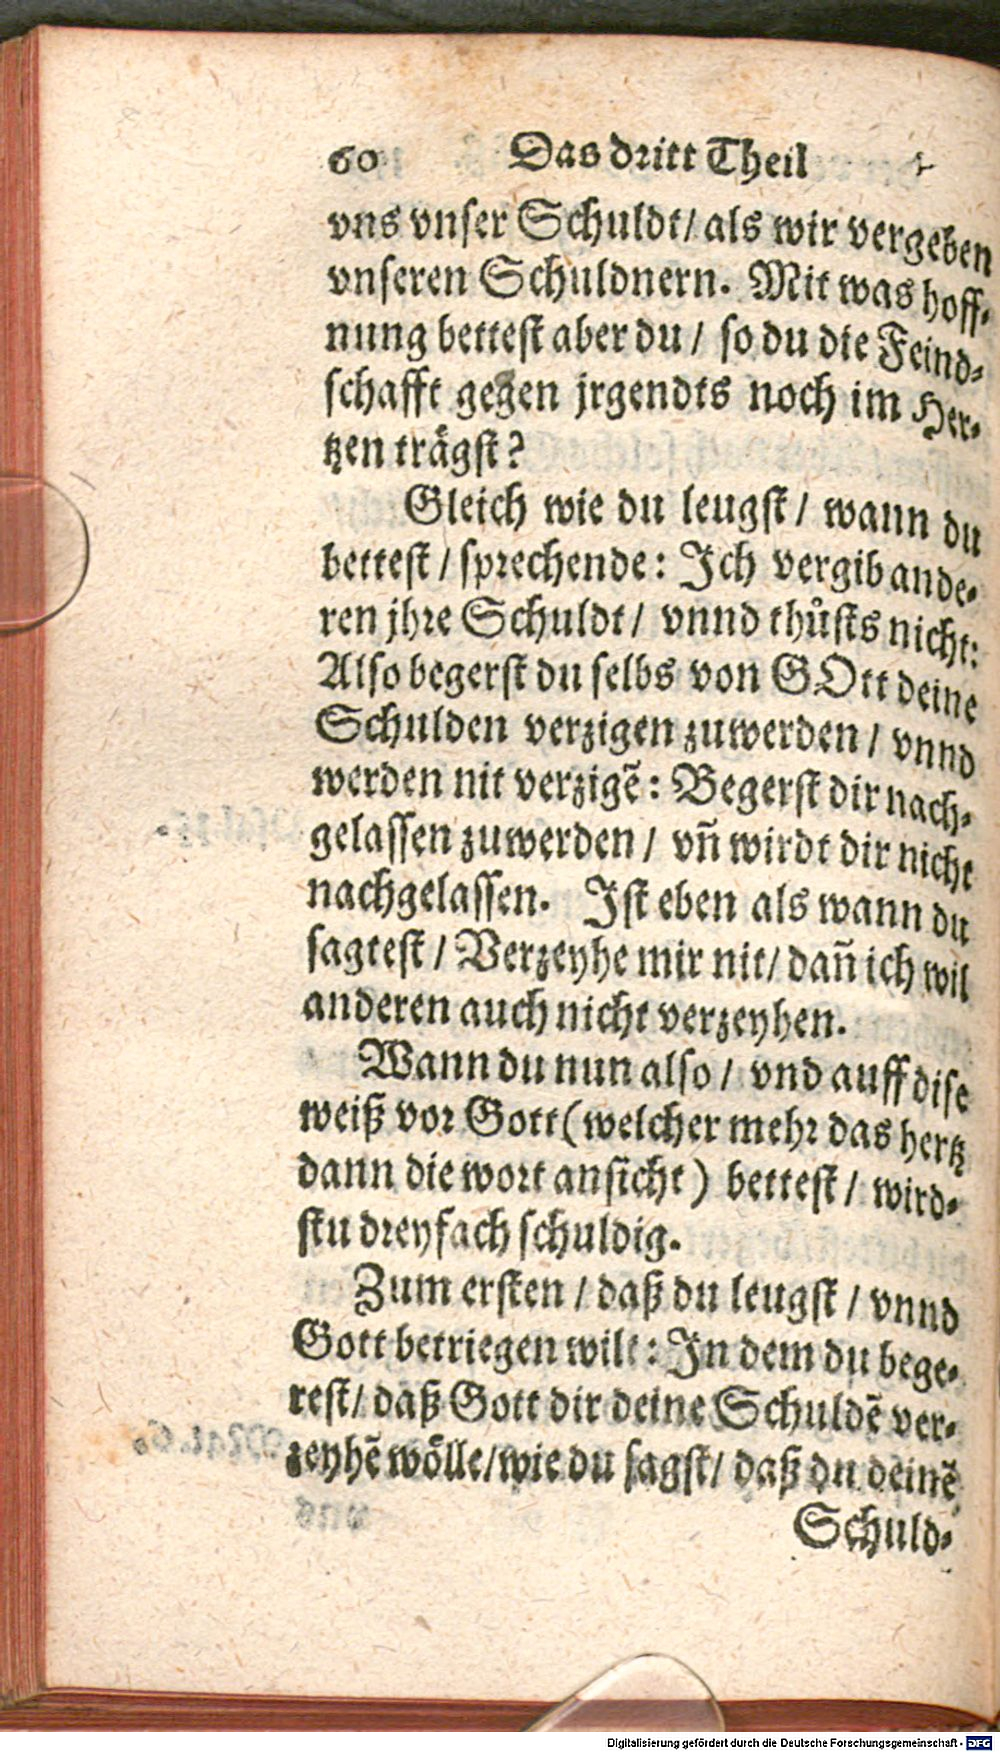 60 Das dritt Theil
vns vnser Schuldt/ als wir vergeben
vnseren Schuldnern. Mit was hoff-
nung bettest aber du / so du die Feind-
schafft gegen jrgendts noch im Her-
tzen trägst?
Gleich wie du leugst / wann du
bettest / sprechende: Ich vergib ande-
ren jhre Schuldt / vnnd thůsts nicht:
Also begerst du selbs von GOtt deine
Schulden verzigen zuwerden / vnnd
werden nit verzigẽ: Begerst dir nach-
gelassen zuwerden / vñ wirdt dir nicht
nachgelassen. Ist eben als wann du
sagtest / Verzeyhe mir nit/ dañ ich wil
anderen auch nicht verzeyhen.
Wann du nun also / vnd auff dise
weiß vor Gott (welcher mehr das hertz
dann die wort ansicht) bettest / wird-
stu dreyfach schuldig.
Zum ersten / daß du leugst / vnnd
Gott betriegen wilt: In dem du bege-
rest/ daß Gott dir deine Schuldẽ ver-
zeyhẽ wölle/wie du sagst/ daß du deinẽ
Schuld-
Digitalisierung gefördert durch die Deutsche Forschungsgemeinschaft - DFG